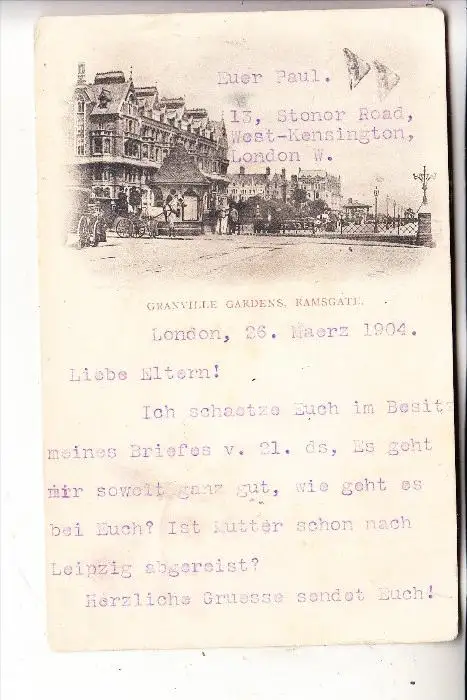 Euer Paul.
13, Stonor Road,
West-Kensington,
London W.
GRANVILLE GARDENS, RAMSGATE.
London, 26. Maerz 1904.
Liebe Eltern!
Ich schaetze Euch im Besitz
meines Briefes v. 21. ds, Es geht
mir soweit ganz gut, wie geht es
bei Euch? Ist Mutter schon nach
Leipzig abgereist?
Herzliche Gruesse sendet Euch!